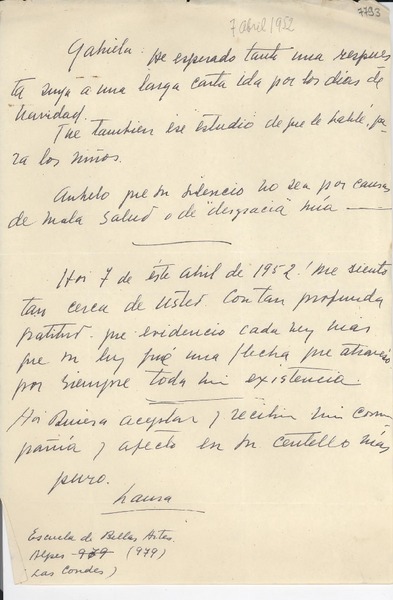 7793
7 abril/952
Gabriela: He esperado tanto una respues
ta suya a una larga carta ida por los días de
Navidad.
Fue tambien ese estudio de que le hablé, pa-
ra los niños.
Anhelo que su silencio no sea por causas
de mala salud o de "desgracia" mía —
Hoi 7 de éste abril de 1952! me siento
tan cerca de Usted. Con tan profunda
gratitud. que evidencio cada vez más
que su ley fué una flecha que atravesó
por siempre toda mi existencia.
Hoi Quiera aceptar y recibir mi com
pañía y afecto en su centello más
puro.
Laura
Escuela de Bellas Artes.
Alpes 979 (979)
(Las Condes)